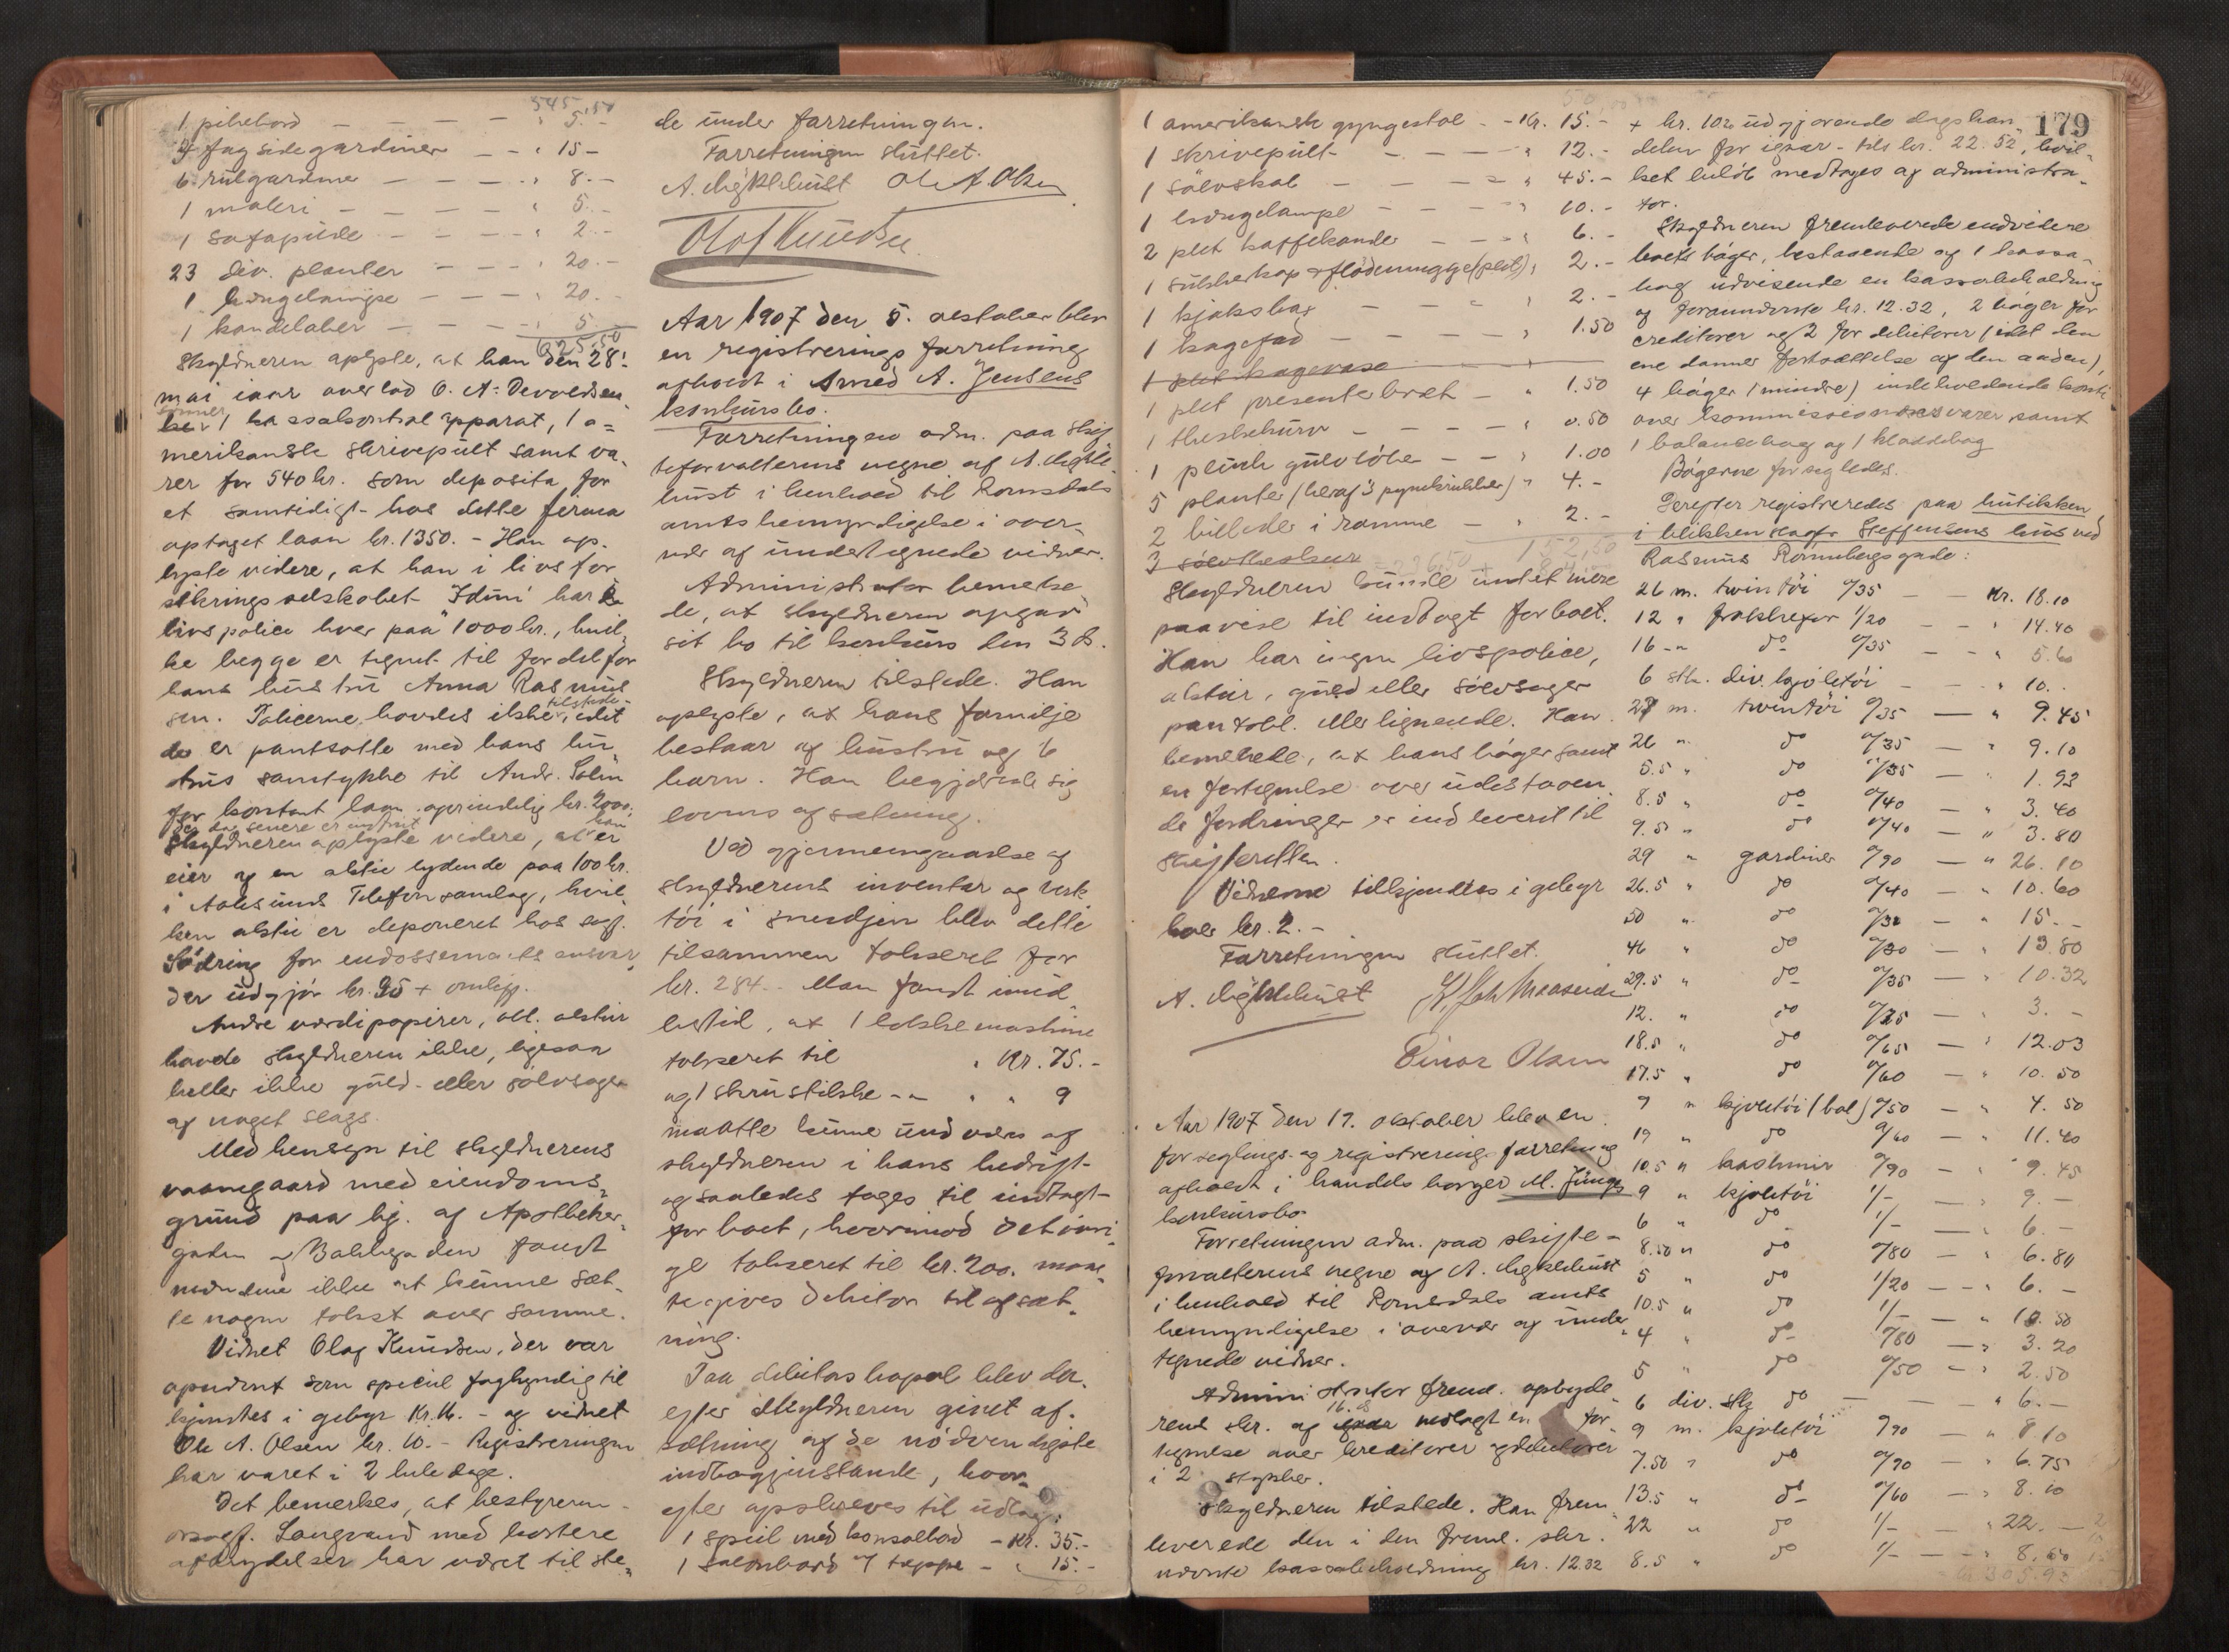 545,50
1 pibebord — — — — " 5.-
4 fag sidegardiner — — " 15-
6 rulgardiner — — — " 8.-
1 maleri — — — — " 5.-
1 sofapude — — — " 2.-
23 div. planter — — — " 20.-
1 hængelampe — — — " 20.-
1 kandelaber — — — " 5
625,50
Skyldneren oplyste, at han den 28!
mai iaar overlod O. A. Devoldsen
sønner
1 kassakontrol apparat, 1 a=
merikansk skrivepult samt va-
rer for 540 kr. som deposita for
et samtidigt hos dette firma
optaget laan kr. 1350.- Han op-
lyste videre, at han i livsfor
sikringsselskabet Idun har 2
livspolice hver paa 1000 kr., hvil-
ke begge er tegnet til fordel for
hans hustru Anna Rasmus
sen. Policerne havdes ikke tilstede, idet
de er pantsatte med hans hu-
strus samtykke til Andr. Solin
for kontant laan oprindelig kr. 2000.
der da senere er
Skyldneren oplyste videre, at han er
eier af en aktie lydende paa 100 kr.
i Aalesunds Telefonsamlag, hvil-
ken aktie er deponeret hos sagf.
Sødring for endossements ansvar,
der udgjør kr. 95 + omkgg.
Andre værdipapirer, obl. aktier
havde skyldneren ikke, ligesaa
heller ikke guld- eller sølvsager
af noget slags.
Med hensyn til skyldnerens
vaanegaard med eiendoms-
grund paa hj. af Apotheker-
gaden og Bakkegaden fandt
mændene ikke at kunne sæt-
te nogen takst over samme.
Vidnet Olaf Knudsen, der var
opnævnt som speciel fagkyndig til
kjendtes i gebyr Kr. 16.- og vidnet
Ole A. Olsen kr. 10.- Registreringen
har varet i 2 hele dage.
Det bemerkes, at bestyreren
orsagf. Langvand med kortere
afbrydelser har været til ste-
de under forretningen.
Forretningen sluttet.
A. Myklebust Ole A Olsen
Olaf Knudsen
Aar 1907 den 5. october blev
en registrerings forretning
afholdt i Smed A. Jensens
konkursbo.
Forretningen adm. paa skif
teforvalterens vegne af A. Mykle-
bust i henhold til Romsdals
amts bemyndigelse i over-
vær af undertegnede vidner.
Administrator bemerke
de, at skyldneren opgav
sit bo til konkurs den 3 ds.
Skyldneren tilstede. Han
oplyste, at hans familje
bestaar af hustru og 6
barn. Han begjærede sig
lovens afsætning.
Ved gjennemgaaelse af
skyldnerens inventar og verk
tøi i smedjen blev dette
tilsammen takseret for
kr. 284.- Man fandt imid-
lertid, at 1 maskine
takseret til " Kr. 75.-
og 1 skrustikke -"- " " 9
maatte kunne undværes af
skyldneren i hans bedrift
og saaledes tages til indtægt
for boet, hvorimod det øvri-
ge takseret til kr. 200. maat-
te gives debitor til afsæt-
ning.
Paa debitors bopæl blev der-
efter skyldneren givet af-
sætning af de nødvendigste
indbogjenstande, hvor-
efter opskreves til udlæg:
1 speil med konsolbord - Kr. 35.-
1 salonbord & teppe - " 15.-
179
1 amerikansk gyngestol - - Kr. 15.-
1 skrivepult - — — — " 12.-
1 sølvskab — — — — " 45.-
1 hængelampe — — — " 10.-
2 plet kaffekander — — " 6.-
1 sukkerkop & flødemugge (plet) " 2.-
1 kjøksbax — — — " 2.-
1 kagefad — — — — " 1.50
1 plet kagevase
1 plet presenterbret — " 1.50
1 theskekurv — — — " 0.50
1 plysch gulvløber — — " 1.00
5 planter (heraf 3 pyntekrukker) " 4.-
2 billeder i ramme — — " 2.-
3 sølvtheskeer
152,50
Skyldneren kunde intet mere
paavise til indtægt for boet.
Han har ingen livspolice,
aktier, guld eller sølvsager
pantobl. eller lignende. Han
bemerkede, at hans bøger samt
en fortegnelse over udestaaen-
de fordringer er indleveret til
skifteretten.
Vidnerne tilkjendtes i gebyr
hver kr. 2.-
Forretningen sluttet.
A. Myklebust
Einar Olsen
Aar 1907 den 17. oktober blev en
forseglings- og registrerings forretning
afholdt i handelsborger M. Jungs
konkursbo
Forretningen adm. paa skifte-
forvalterens vegne af A. Myklebust
i henhold til Romsdals amts
bemyndigelse i overvær af under
tegnede vidner.
Administrator freml. opbyde
rens skr. af 16. ds nedlagt en for
tegnelse over kreditorer og debitorer
i 2 stykker.
Skyldneren tilstede. Han frem
leverede den i den freml. skr.
nævnte kassabeholdning kr. 12.32
+ kr. 10.20 udgjørende dagshan
delen for igaar - tils kr. 22.52, hvil-
ket beløb medtages af administra-
tor.
Skyldneren fremleverede endvidere
boets bøger, bestaaende af 1 kassa-
bog udvisende en kassabeholdning
af forannævnte kr. 12.32, 2 bøger for
creditorer og 2 for debitorer (idet den
ene danner fortsættelse af den anden),
4 bøger (mindre) indeholdende konti
over kommissionsvarer samt
1 balancebog og 1 kladdebog
Bøgerne forsegledes.
Derefter registreredes paa butikken
i blikkenslager Steffensens hus ved
Rasmus Rønnebergs gade:
26 m. twintøi %35 — — Kr. 18.10
12 " 1/20 — — " 14.40
16 -" do %35 — — " 5.60
6 stk. div. kjoletøi — — " 10.-
27 m. twintøi %35 — " 9.45
26 " do %35 — " 9.10
5.5 " do %35 — " 1.93
8.5 " do %40 — " 3.40
9.5 " do %40 — " 3.80
29 " gardiner %90 — " 26.10
26.5 " do %40 — " 10.60
50 " do %30 — " 15.-
46 " do %30 — " 13.80
29.5 " do %35 — " 10.32
12. " do %25 — " 3.-
18.5 " do %65 — " 12.03
17.5 " do %60 — " 10.50
9 " kjoletøi (bol) %50 — " 4.50
19 " do %60 — " 11.40
10.5 " kashmir %90 — " 9.45
9 " kjoletøi 1/- — " 9.-
6 " do 1/- — " 6.-
8.50 " do %80 — " 6.80
5 " do 1/20 — " 6.-
10.5 " do 1/- — " 10.50
4 " do %80 — " 3.20
5 " do %50 — " 2.50
6 div. stk do — — " 6.-
9 m. kjoletøi %90 — " 8.10
7.50 " do %90 — " 6.75
13.5 " do %60 — " 8.10
22 " do 1/- — " 22.-
8.5 " do 1/- — " 8.50
305.93